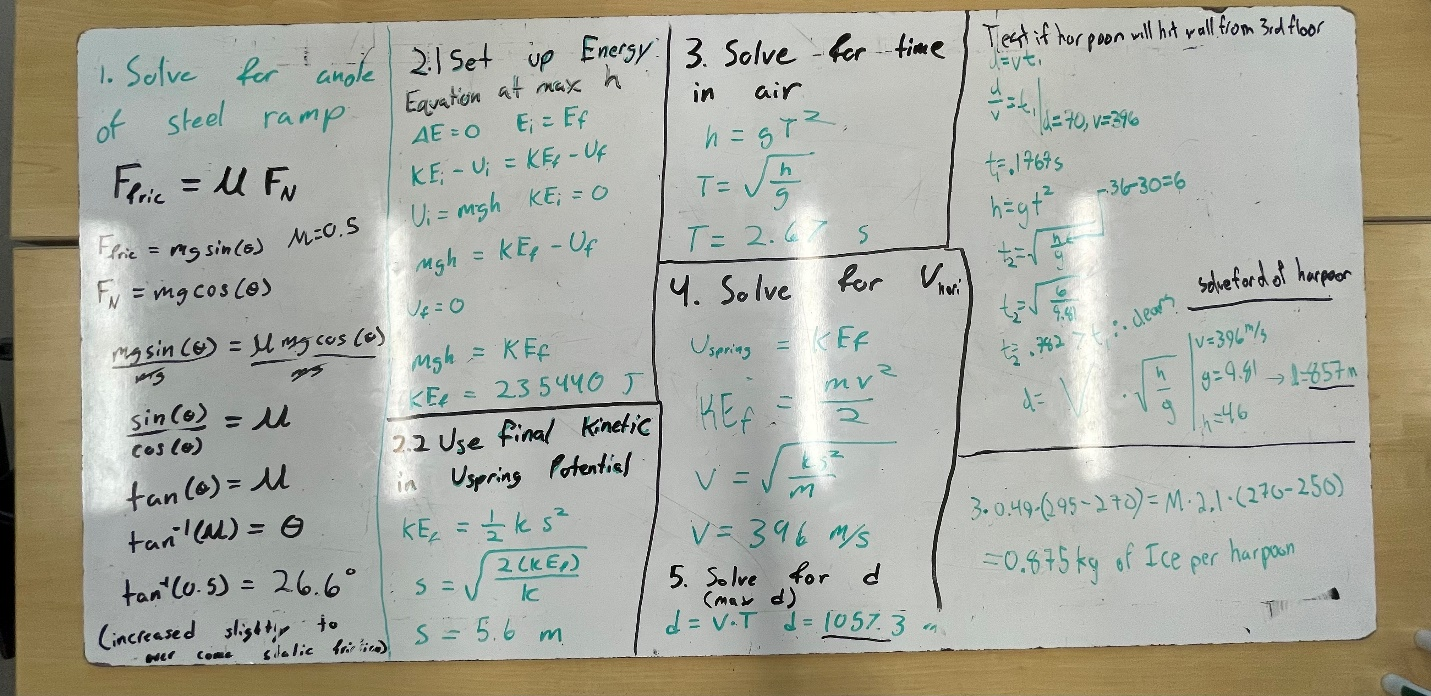 1. Solve for angle
of steel ramp
F_fric = μ F_N
F_fric = mg sin(θ) M=0.5
F_N = mg cos(θ)
mg sin(θ)/mg = μ mg cos(θ)/mg
sin(θ)/cos(θ) = μ
tan(θ) = μ
tan⁻¹(μ) = θ
tan⁻¹(0.5) = 26.6°
(increased slightly to
over come static friction)
2.1 Set up Energy
Equation at max h
ΔE = 0 E_i = E_f
KE_i - U_i = KE_f - U_f
U_i = mgh KE_i = 0
mgh = KE_f - U_f
U_f = 0
mgh = KE_f
KE_f = 235440 J
2.2 Use final Kinetic
in Uspring Potential
KE_f = 1/2 k s²
s = √(2(KE_f)/k)
s = 5.6 m
3. Solve for time
in air
h = gT²
T = √(h/g)
T = 2.67 s
4. Solve for V_hori
U_spring = KE_f
KE_f = mv²/2
v = √(ks²/m)
v = 396 m/s
5. Solve for d
(max d)
d = v·T d = 1057.3 m
Test if harpoon will hit wall from 3rd floor
d=vt₁
d/v = t₁ | d=70, v=396
t₁=.1767s
h=gt²
36-30=6
t₂=√(h/g)
t₂=√(6/9.81)
t₂=.782 > t₁ ∴ clears
solve for d of harpoon
d= V · √(h/g) | v=396 m/s
g=9.81 → d=857m
h=46
3·0.49·(295-270)=M·2.1·(270-250)
=0.875kg of Ice per harpoon